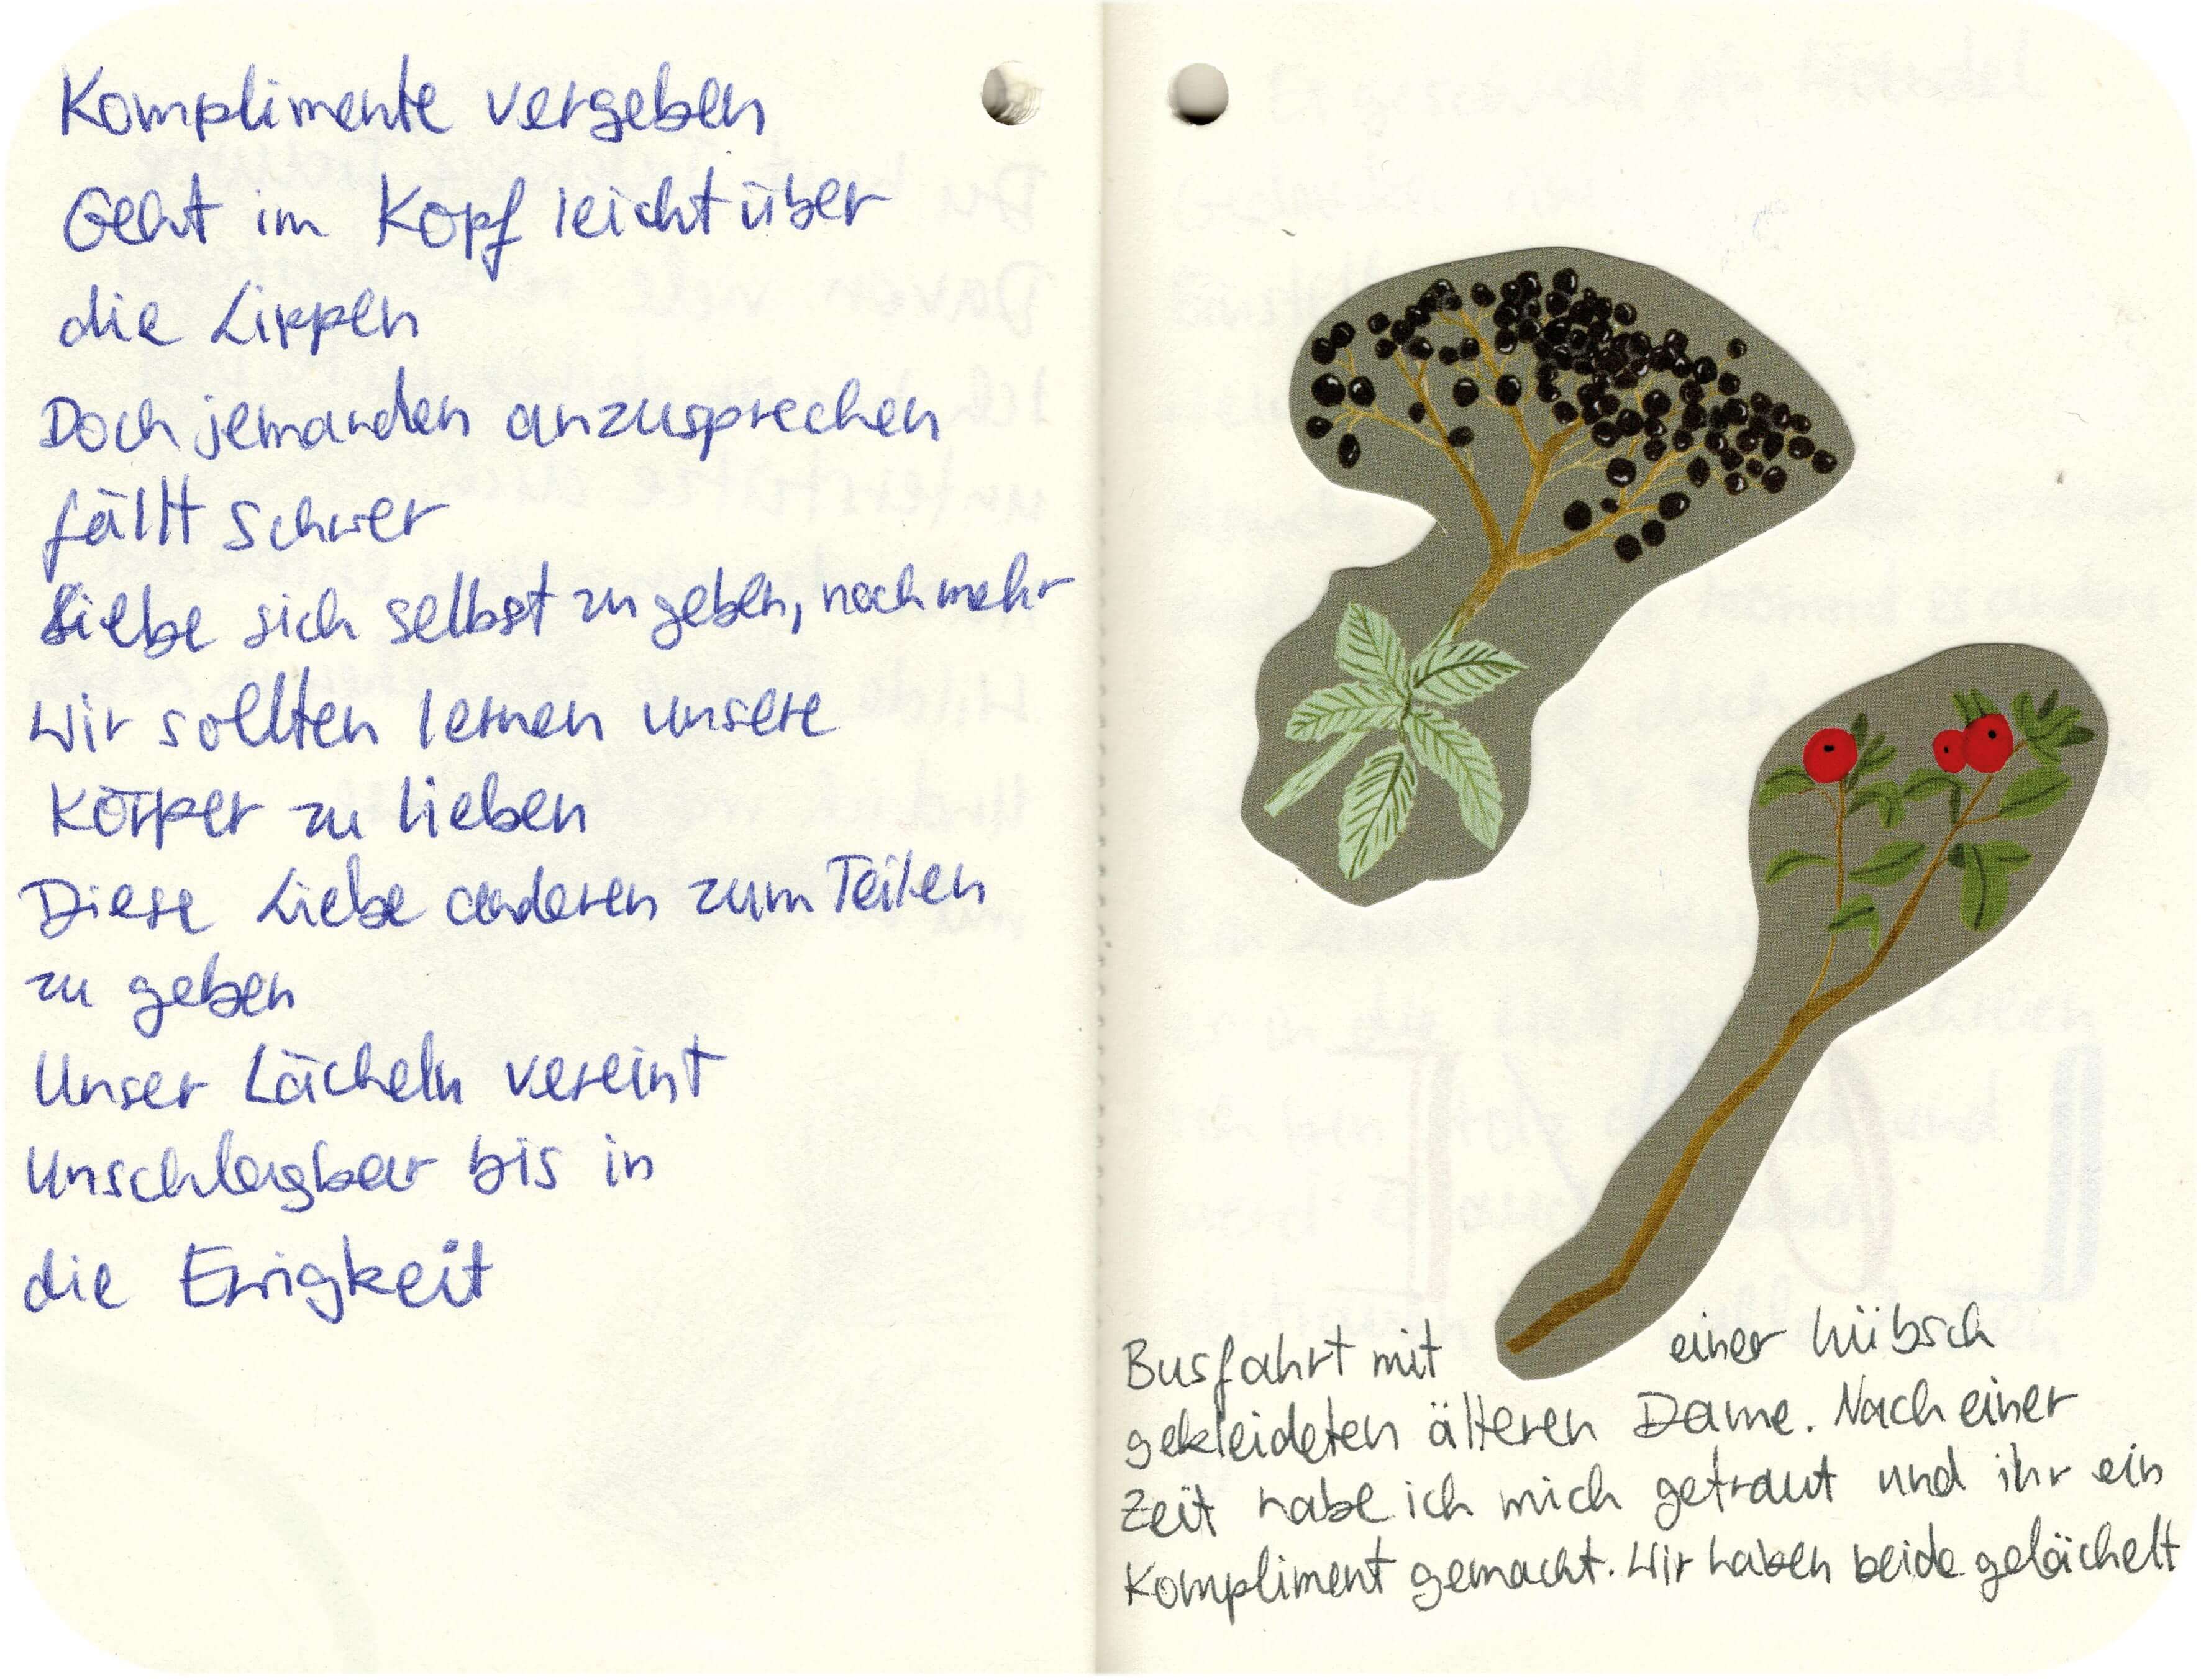 Komplimente vergeben
Geht im Kopf leicht über
die Lippen
Doch jemanden anzusprechen
fällt schwer
Liebe sich selbst zu geben, noch mehr
Wir sollten lernen unsere
Körper zu lieben
Diese Liebe anderen zum Teilen
zu geben
Unser Lächeln vereint
Unschlagbar bis in
die Ewigkeit
Busfahrt mit einer hübsch
gekleideten älteren Dame. Nach einer
Zeit habe ich mich getraut und ihr ein
Kompliment gemacht. Wir haben beide gelächelt